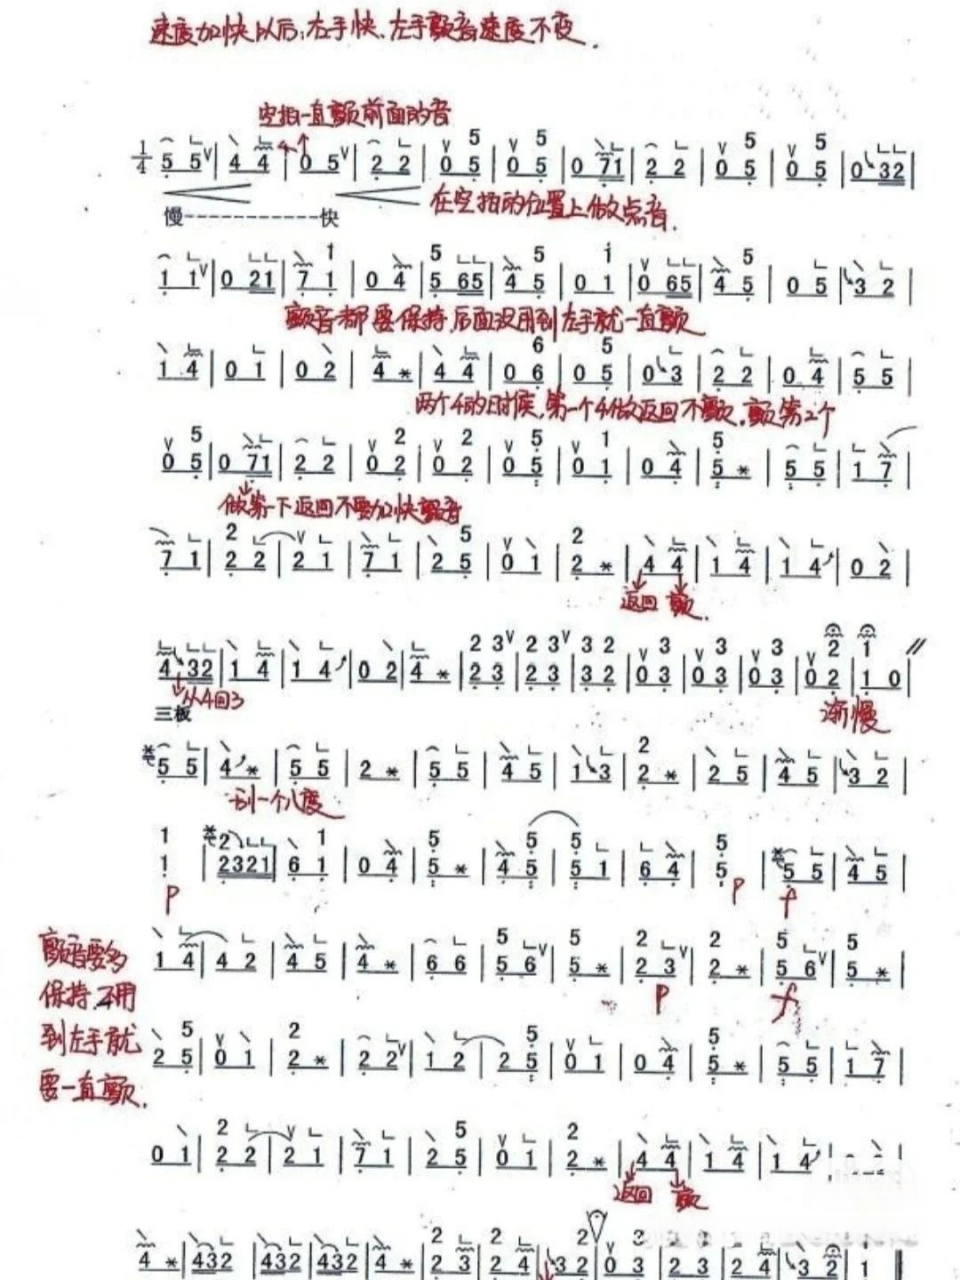 速度加快以后,右手快,左手颤音速度不变.
空拍一直颤前面的音
1/4 5 5 | 4 4 | 0 5 | 2 2 | 0 5 5 | 0 5 5 | 0 71 | 2 2 | 0 5 5 | 0 5 5 | 0 32 |
慢-----------快
在空拍的位置上做点音.
1 1 | 0 21 | 7 1 1 | 0 4 | 5 5 65 | 4 5 5 | 0 1 1 | 0 65 | 4 5 5 | 0 5 | 3 2 |
颤音都要保持,后面没用到左手就一直颤
1 4 | 0 1 | 0 2 | 4 * | 4 4 | 0 6 6 | 0 5 5 | 0 3 | 2 2 | 0 4 | 5 5 |
两个4的时候,第一个4做返回不颤,颤第2个
0 5 5 | 0 71 | 2 2 | 0 2 2 | 0 2 2 | 0 5 5 | 0 1 1 | 0 4 | 5 5 * | 5 5 | 1 7 |
做第一下返回不要加快颤音
7 1 | 2 2 2 | 2 1 | 7 1 | 2 5 5 | 0 1 | 2 2 * | 4 4 | 1 4 | 1 4 | 0 2 |
返回 颤.
4 32 | 1 4 | 1 4 | 0 2 | 4 * | 2 3 2 3 | 2 3 2 3 | 3 2 3 2 | 0 3 3 | 0 3 3 | 0 3 3 | 0 2 2 | 1 1 0 |
从4回3
渐慢
三板
5 5 | 4 * | 5 5 | 2 * | 5 5 | 4 5 | 1 3 | 2 2 * | 2 5 | 4 5 | 3 2 |
到一个八度
1 1 | 2 2321 | 6 1 1 | 0 4 | 5 5 * | 4 5 5 | 5 5 1 | 6 4 | 5 5 | 5 5 | 4 5 |
p p f
1 4 | 4 2 | 4 5 | 4 * | 6 6 | 5 5 6 | 5 5 * | 2 2 3 | 2 2 * | 5 5 6 | 5 5 * |
p f
颤音要多
保持,不用
到左手就
要一直颤.
2 5 5 | 0 1 | 2 2 * | 2 2 | 1 2 | 2 5 5 | 0 1 | 0 4 | 5 5 * | 5 5 | 1 7 |
0 1 | 2 2 2 | 2 1 | 7 1 | 2 5 5 | 0 1 | 2 2 * | 4 4 | 1 4 | 1 4 |
返回 颤
4 * | 432 | 432 | 432 | 4 * | 2 2 3 | 2 2 4 | 3 2 2 | 0 3 3 | 2 3 | 2 4 | 3 2 | 1 ‖